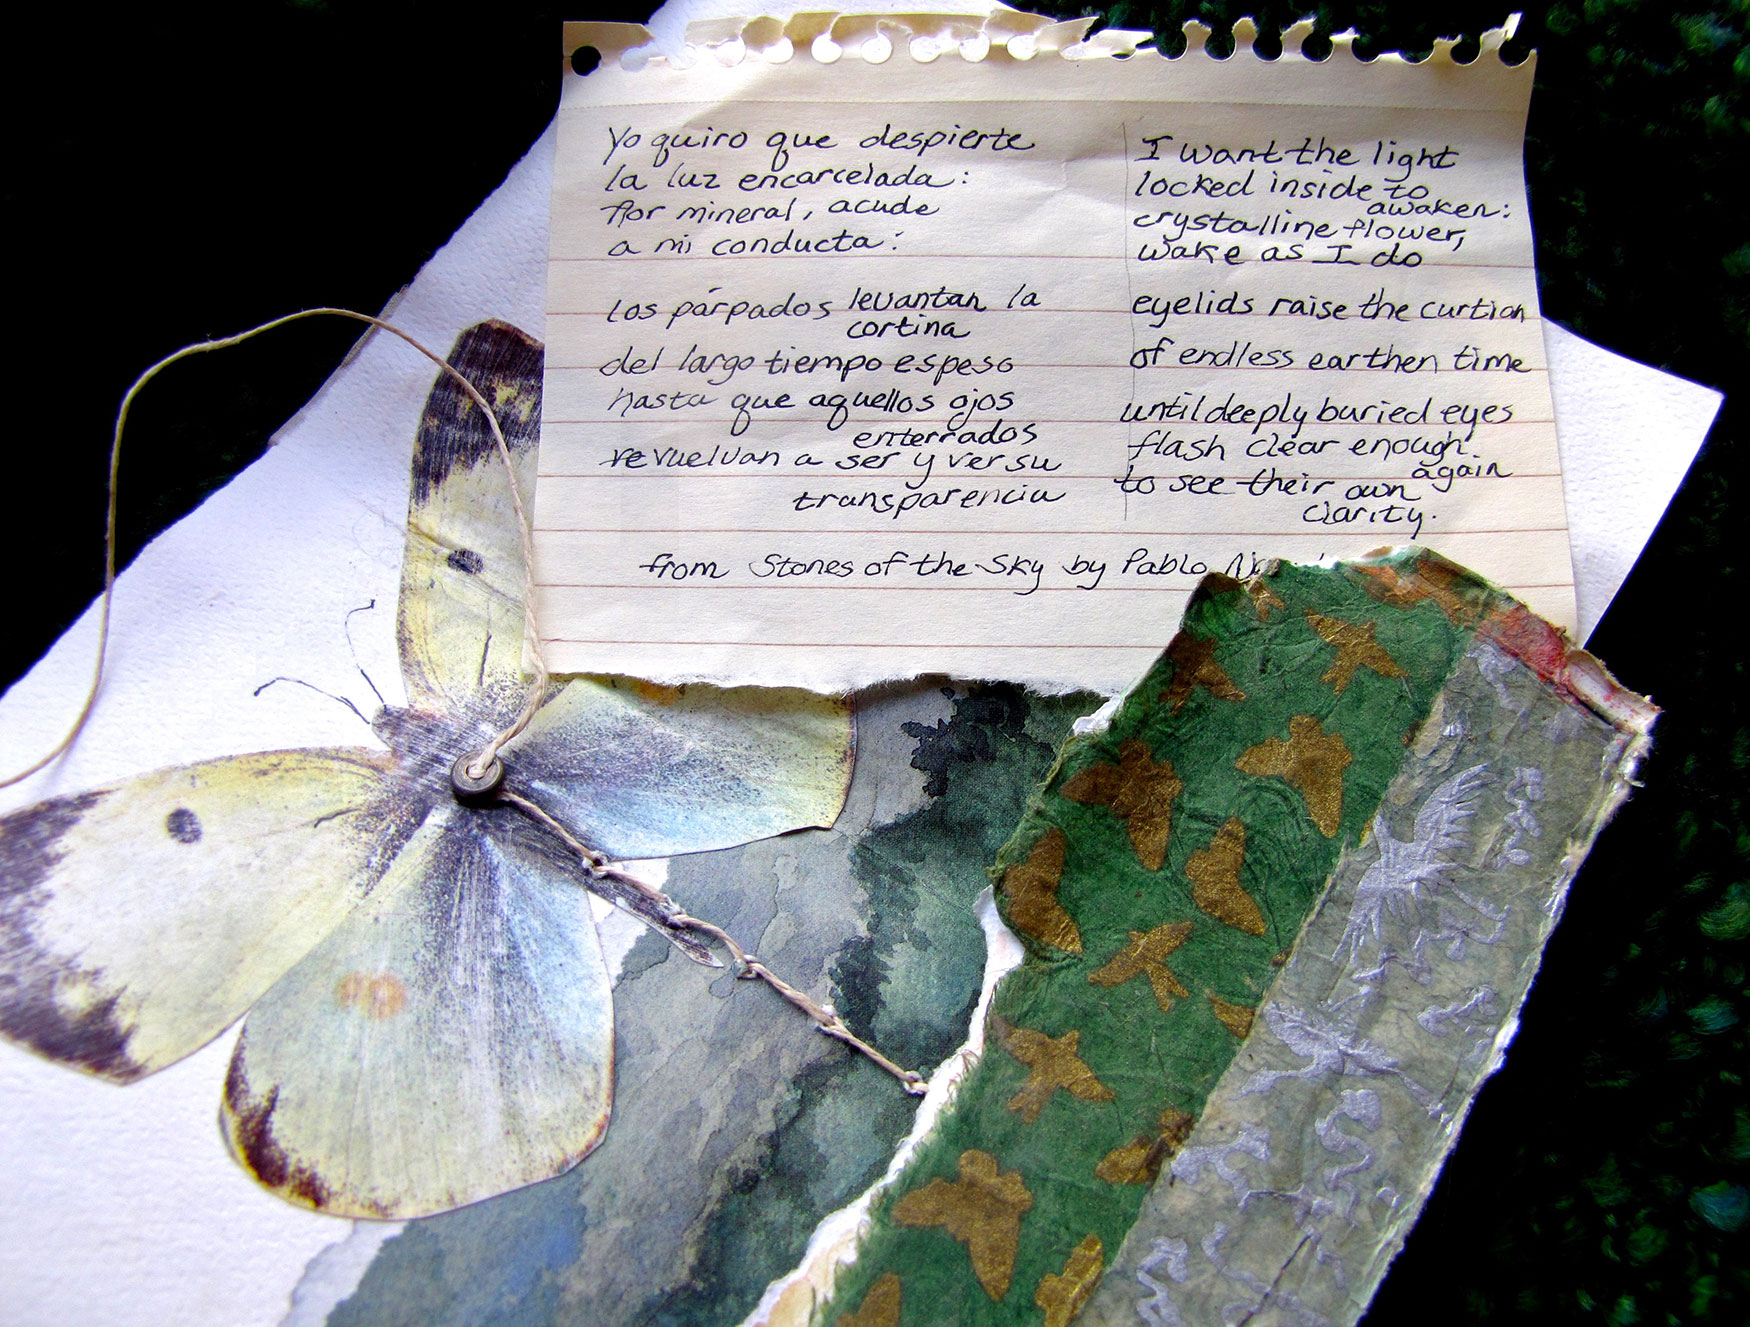 Yo quiro que despierte
la luz encarcelada:
flor mineral, acude
a mi conducta:
los párpados levantan la
cortina
del largo tiempo espeso
hasta que aquellos ojos
enterrados
revuelvan a ser y ver su
transparencia
I want the light
locked inside to
awaken:
crystalline flower,
wake as I do
eyelids raise the curtian
of endless earthen time
until deeply buried eyes
flash clear enough
again
to see their own
clarity.
from Stones of the Sky by Pablo